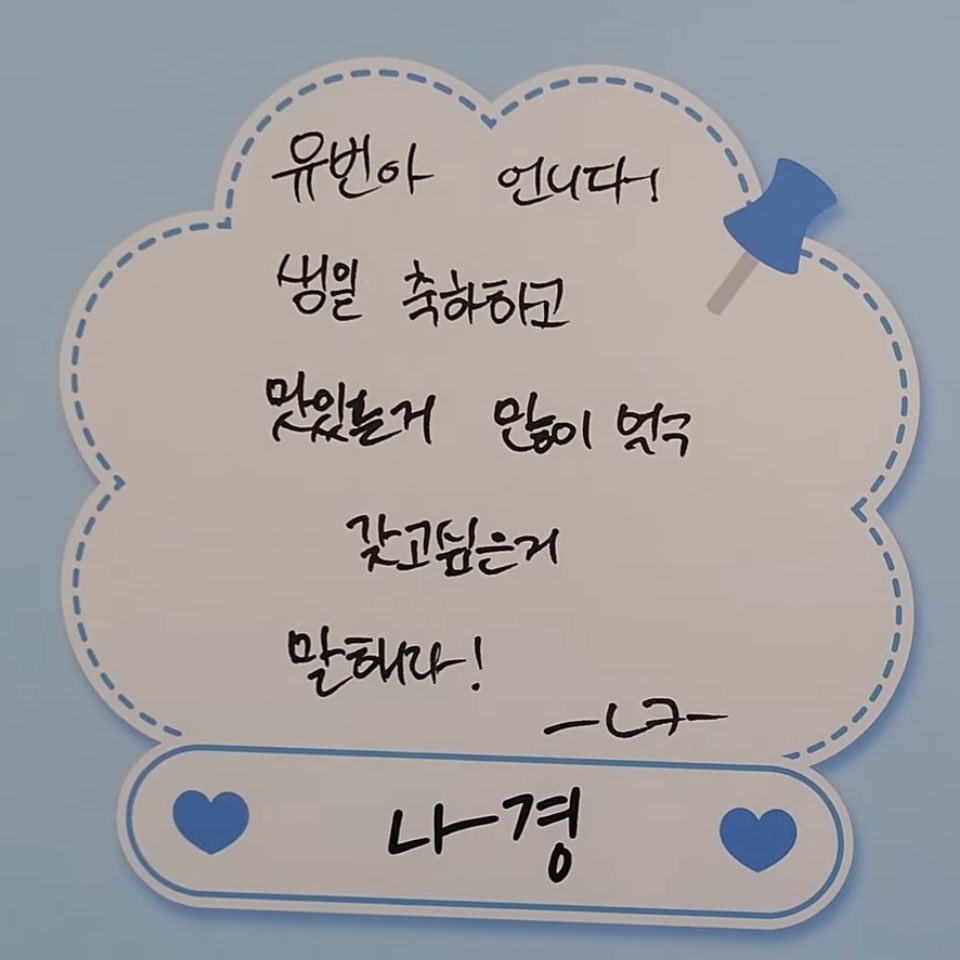 유빈아 언니다!
생일 축하하고
맛있는거 많이 먹구
갖고싶은거
말해라!
-ㄴㄱ-
나경